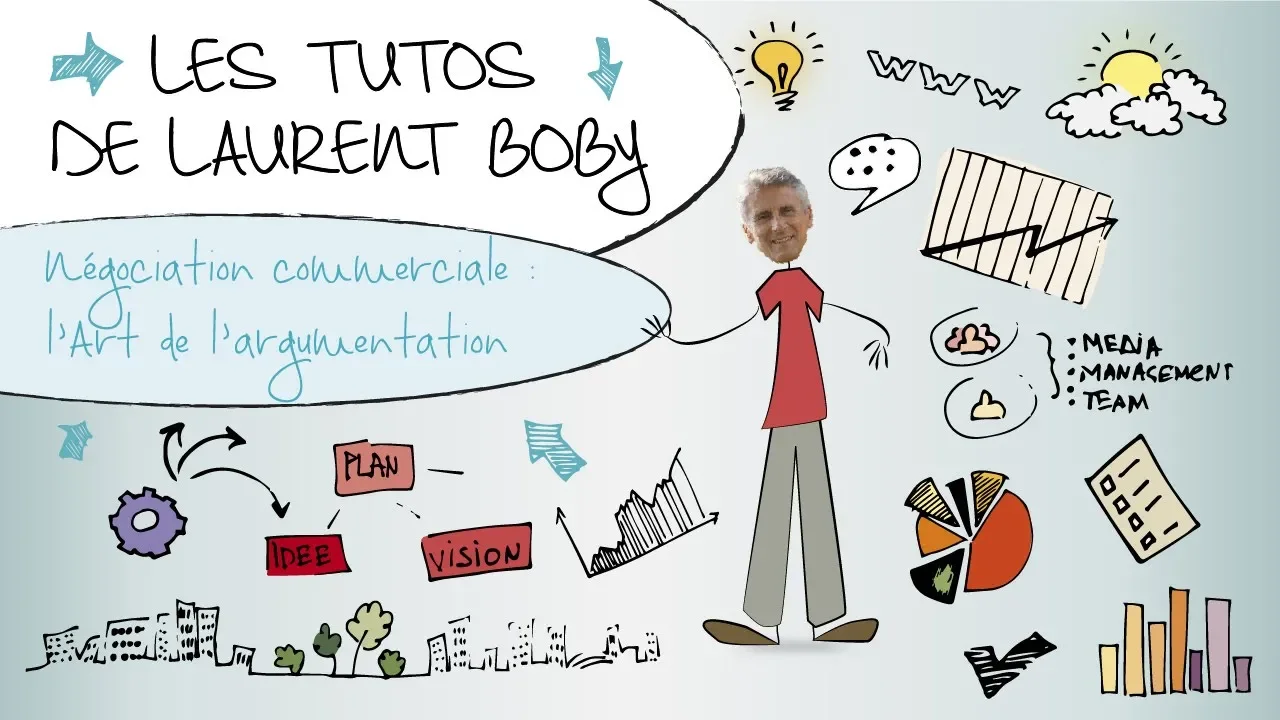 LES TUTOS
DE LAURENT BOBY
Négociation commerciale :
l'Art de l'argumentation
WWW
MEDIA
MANAGEMENT
TEAM
PLAN
IDEE
VISION